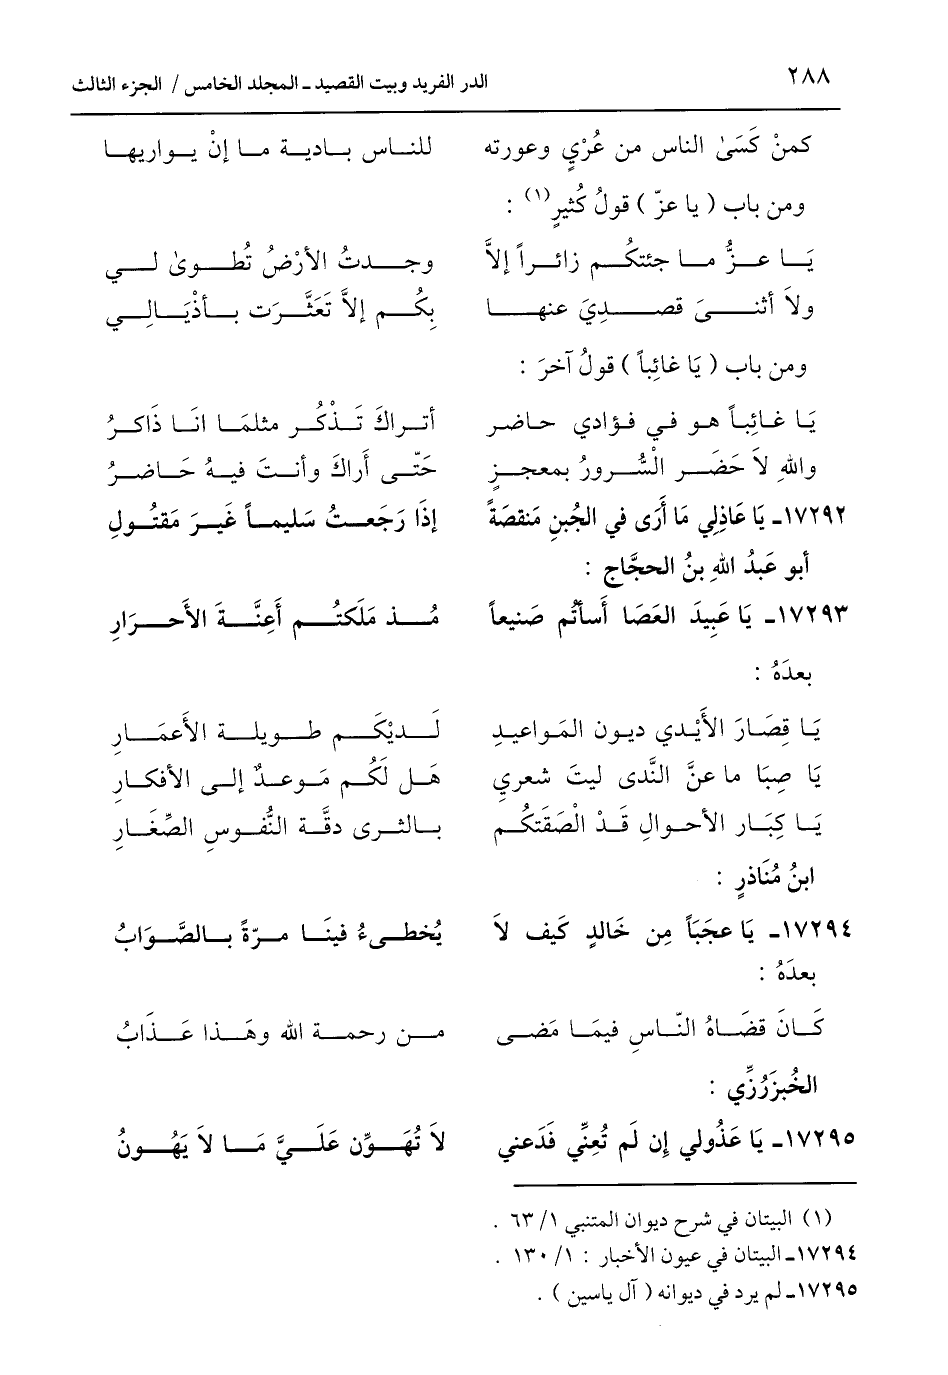 ٢٨٨ الدر الفريد وبيت القصيد ـ المجلد الخامس / الجزء الثالث
كمنْ كَسَىٰ الناس من عُرْيٍ وعورته للنـاس بـاديـة مـا إنْ يـواريهـا
ومن باب ( يا عزّ ) قولُ كُثيرٍ(١) :
يَـا عـزُّ مـا جئتكُـم زائـراً إلاَّ وجـدتُ الأرْضُ تُطـوىٰ لـي
ولاَ أثنـىَ قصـدِيَ عنهـا بِكُـم إلاَّ تَعَثَّـرَت بـأذْيَـالِـي
ومن باب ( يَا غائِباً ) قولُ آخرَ :
يَـا غـائِبـاً هـو فـي فـؤادي حـاضر أتـراكَ تَـذْكُـر مثلمَـا انَـا ذَاكـرُ
واللهِ لاَ حَضَـر الْسُّـرورُ بمعجـزٍ حَتّـى أَراكَ وأنـتَ فيـهُ حَـاضـرُ
١٧٢٩٢ـ يَا عَاذِلِي مَا أَرَى في الجُبنِ مَنقصَةً إذَا رَجَعـتُ سَليمـاً غَيـرَ مَقتُـولِ
أبو عَبدُ اللهِ بنُ الحجَّاجِ :
١٧٢٩٣ـ يَا عَبِيدَ العَصَا أَسأتُم صَنيعاً مُـذ مَلَكتُـم أَعِنَّـةَ الأَحـرَارِ
بعدَهُ :
يَـا قِصَـارَ الأَيْـدي ديـون المَـواعيـدِ لَـديْكَـم طـويلـة الأَعمَـارِ
يَا صِبَا ما عنَّ النَّدى ليتَ شعري هَـل لَكُـم مَـوعـدٌ إلـى الأفكـارِ
يَـا كِبَـار الأحـوالِ قَـدْ الْصَقتكُـم بـالثـرى دقَّـة النُّفُـوسِ الصِّغَـارِ
ابنُ مُنَاذرٍ :
١٧٢٩٤ـ يَا عجَبَاً مِن خَالدٍ كَيف لاَ يُخطـىءُ فينَـا مـرّةً بـالصَّـوَابُ
بعدَهُ :
كَـانَ قضَـاهُ النّـاسِ فيمَـا مَضـى مـن رحمـة الله وهَـذا عَـذَابُ
الخُبزَرُزِّي :
١٧٢٩٥ـ يَا عَذُولي إن لَم تُعِنِّي فَدَعني لاَ تُهَـوِّن عَلَـيَّ مَـا لاَ يَهُـونُ
(١) البيتان في شرح ديوان المتنبي ١/ ٦٣ .
١٧٢٩٤ـ البيتان في عيون الأخبار : ١/ ١٣٠ .
١٧٢٩٥ـ لم يرد في ديوانه ( آل ياسين ) .